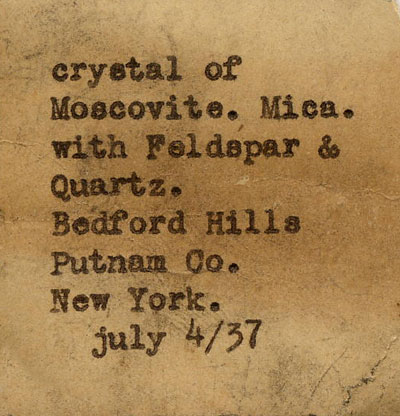 crystal of
Moscovite. Mica.
with Feldspar &
Quartz.
Bedford Hills
Putnam Co.
New York.
july 4/37